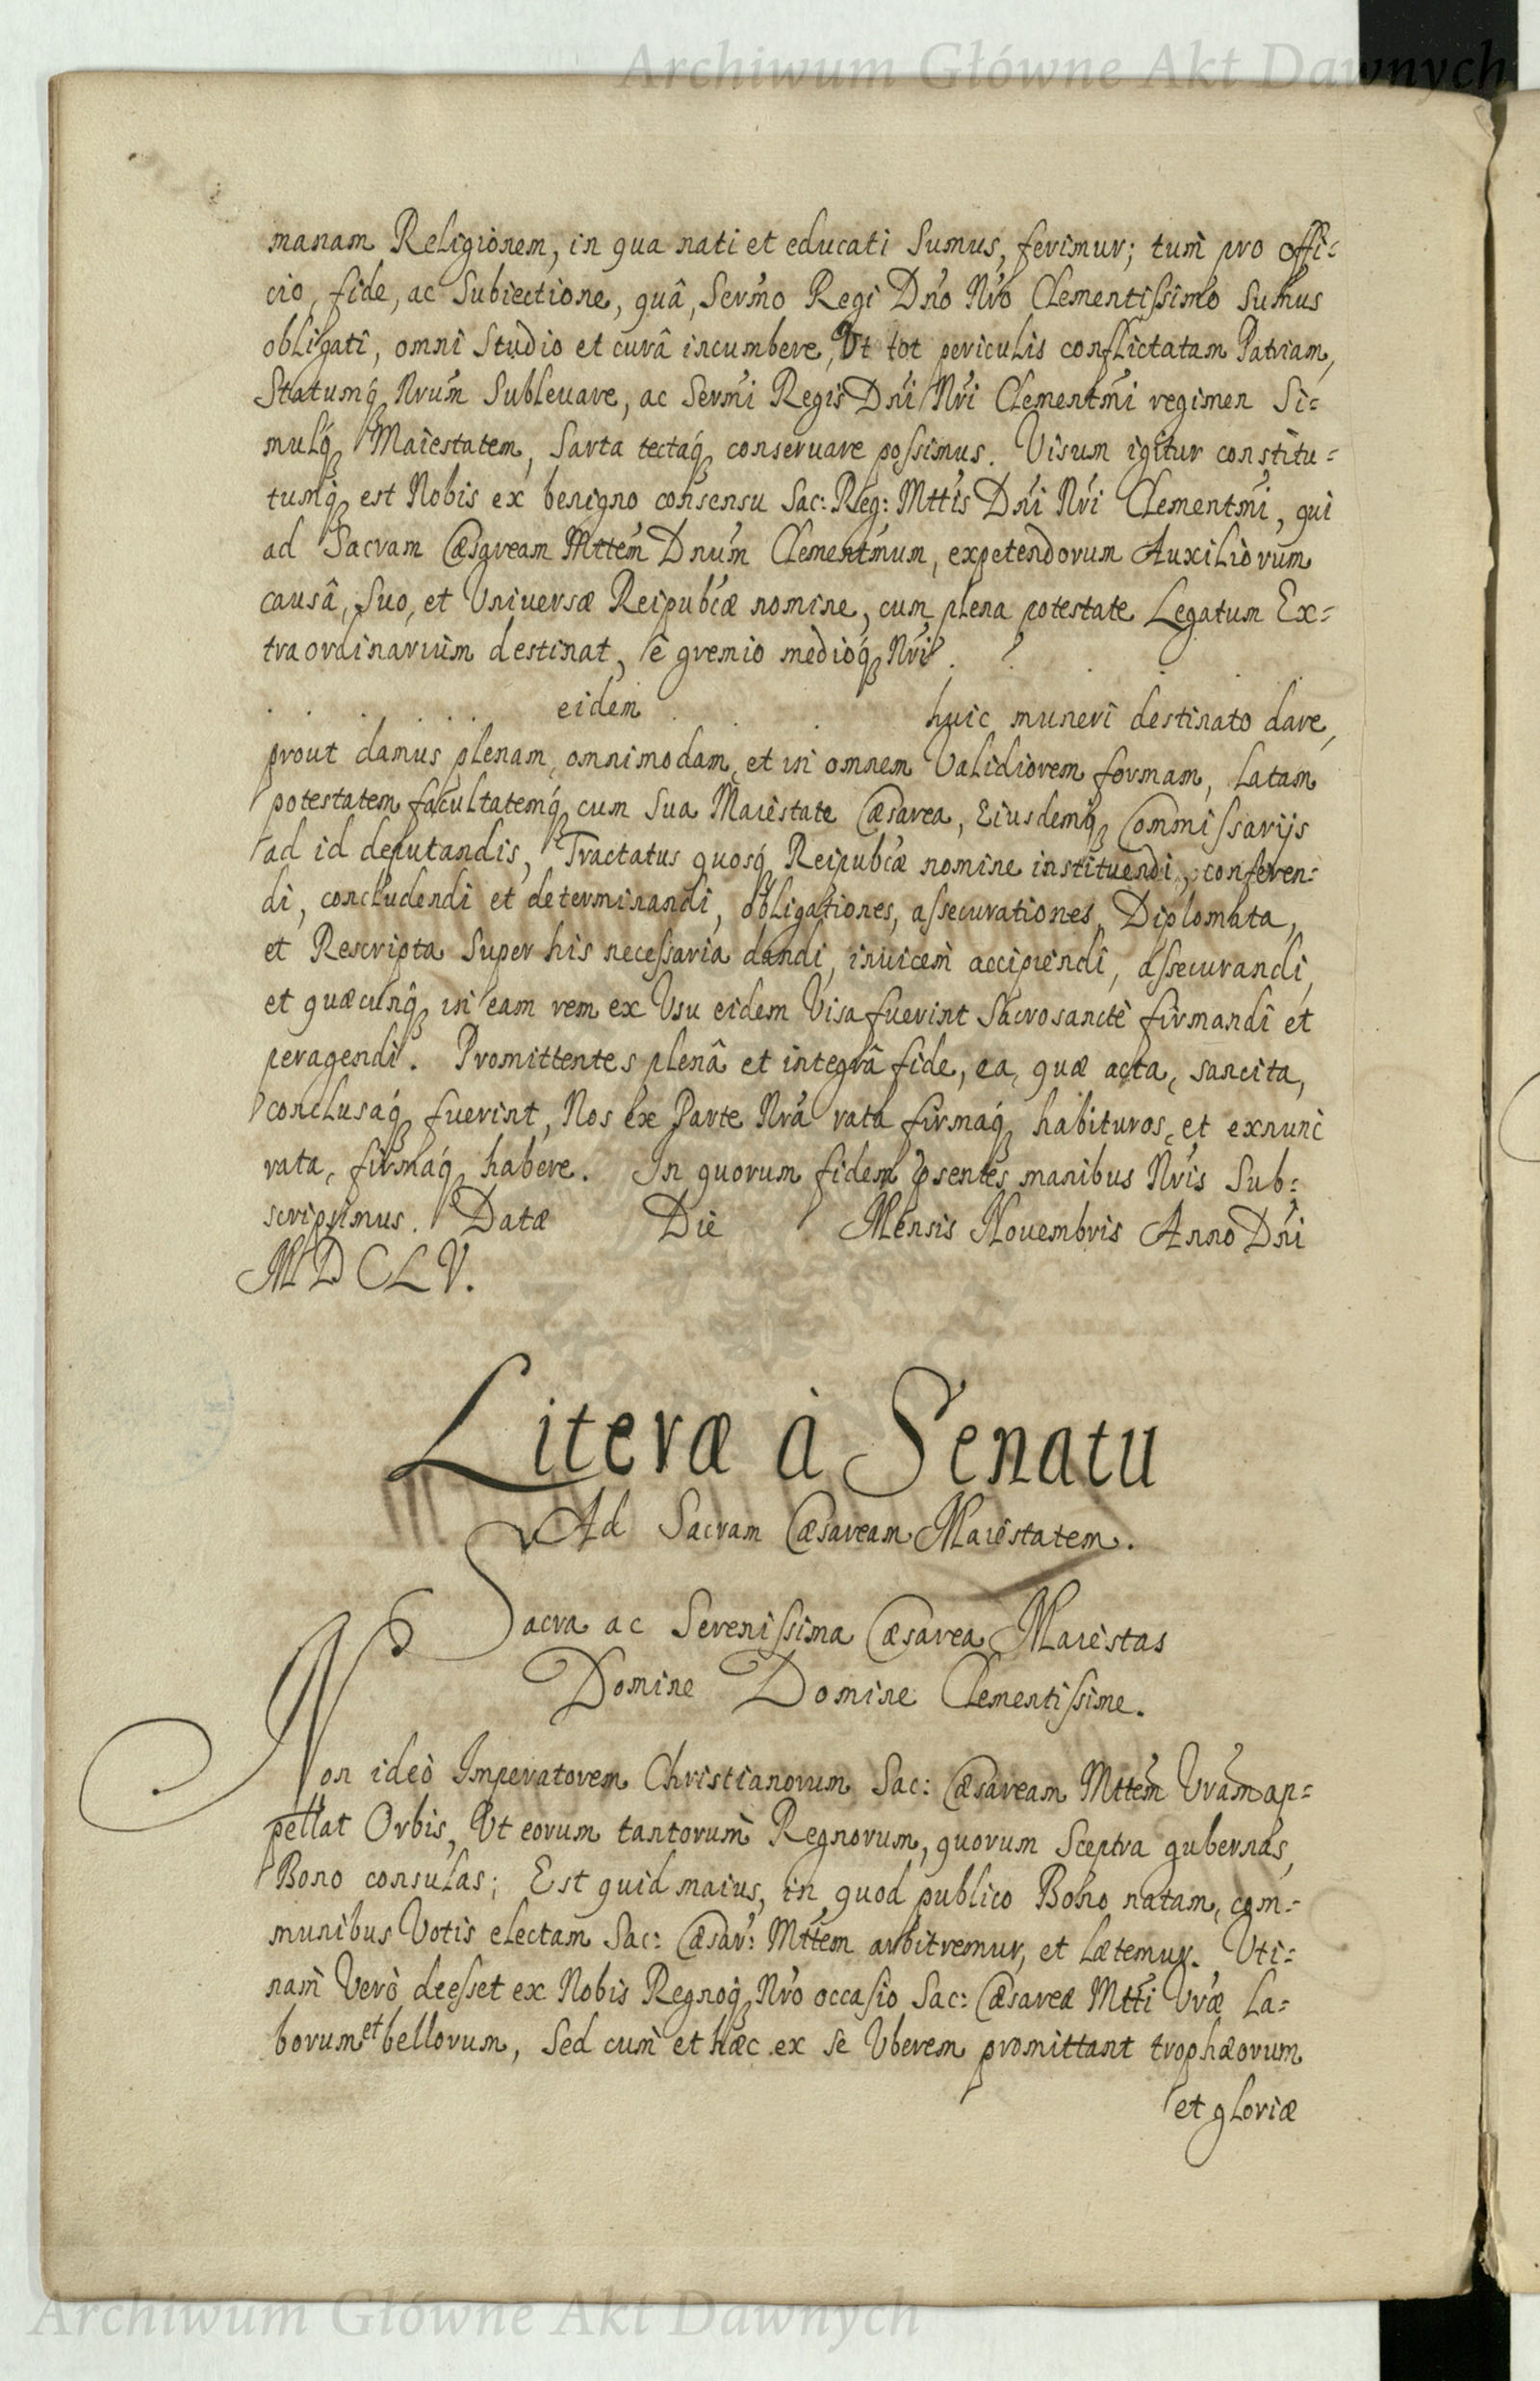 Archiwum Główne Akt Dawnych
manam Religionem, in qua nati et educati Sumus, ferimur; tum pro offi=
cio, fide, ac Subiectione, quâ, Sermo Regi Dno Nro Clementissimo Sumus
obligati, omni Studio et curâ incumbere, Vt tot periculis conflictatam Patriam,
Statumq Nrum Subleuare, ac Sermi Regis Dni Nri Clementmi regimen Si=
mulq Maiestatem, Sarta tectaq conseruare possimus. Visum igitur constitu=
tumq est Nobis ex benigno consensu Sac: Reg: Mttis Dni Nri Clementmi, qui
ad Sacram Cæsaream Mttem Dnum Clementmum, expetendorum Auxiliorum
causâ, Suo, et Universæ Reipubcæ nomine, cum plena potestate Legatum Ex=
traordinarium destinat, è gremio medioq Nri . . . .
. . . . . . eidem . . . huic muneri destinato dare,
prout damus plenam, omnimodam, et in omnem Validiorem formam, latam
potestatem facultatemq cum Sua Maiestate Cæsarea, Eiusdemq Commissarijs
ad id deputandis, Tractatus quosq Reipubcæ nomine instituendi, conferen=
di, concludendi et determinandi, obligationes, assecurationes, Diplomata,
et Rescripta Super his necessaria dandi, inuicem accipiendi, assecurandi,
et quæcunq in eam rem ex Vsu eidem Visa fuerint Sacrosanctè firmandi et
peragendi. Promittentes plenâ et integrâ fide, ea, quæ acta, sancita,
conclusaq fuerint, Nos ex Parte Nra rata firmaq habituros, et exnunc
rata, firmaq habere. In quorum fidem psentes manibus Nris Sub=
scripsimus. Datæ Die Mensis Nouembris Anno Dni
MDCLV.
Literæ à Senatu
Ad Sacram Cæsaream Maiestatem.
Sacra ac Serenissima Cæsarea Maiestas
Domine Domine Clementissime.
Non ideò Imperatorem Christianorum Sac: Cæsaream Mttem Vram ap=
pellat Orbis, Vt eorum tantorum Regnorum, quorum Sceptra gubernas,
Bono consulas; Est quid maius, in quod publico Bono natam, com=
munibus Votis electam Sac: Cæsar: Mttem arbitremur, et lætemur. Vti=
nam Verò deesset ex Nobis Regnoq Nro occasio Sac: Cæsareæ Mtti Vræ la=
borum et bellorum, Sed cum et hæc ex se Vberem promittant trophæorum
et gloriæ
Archiwum Główne Akt Dawnych